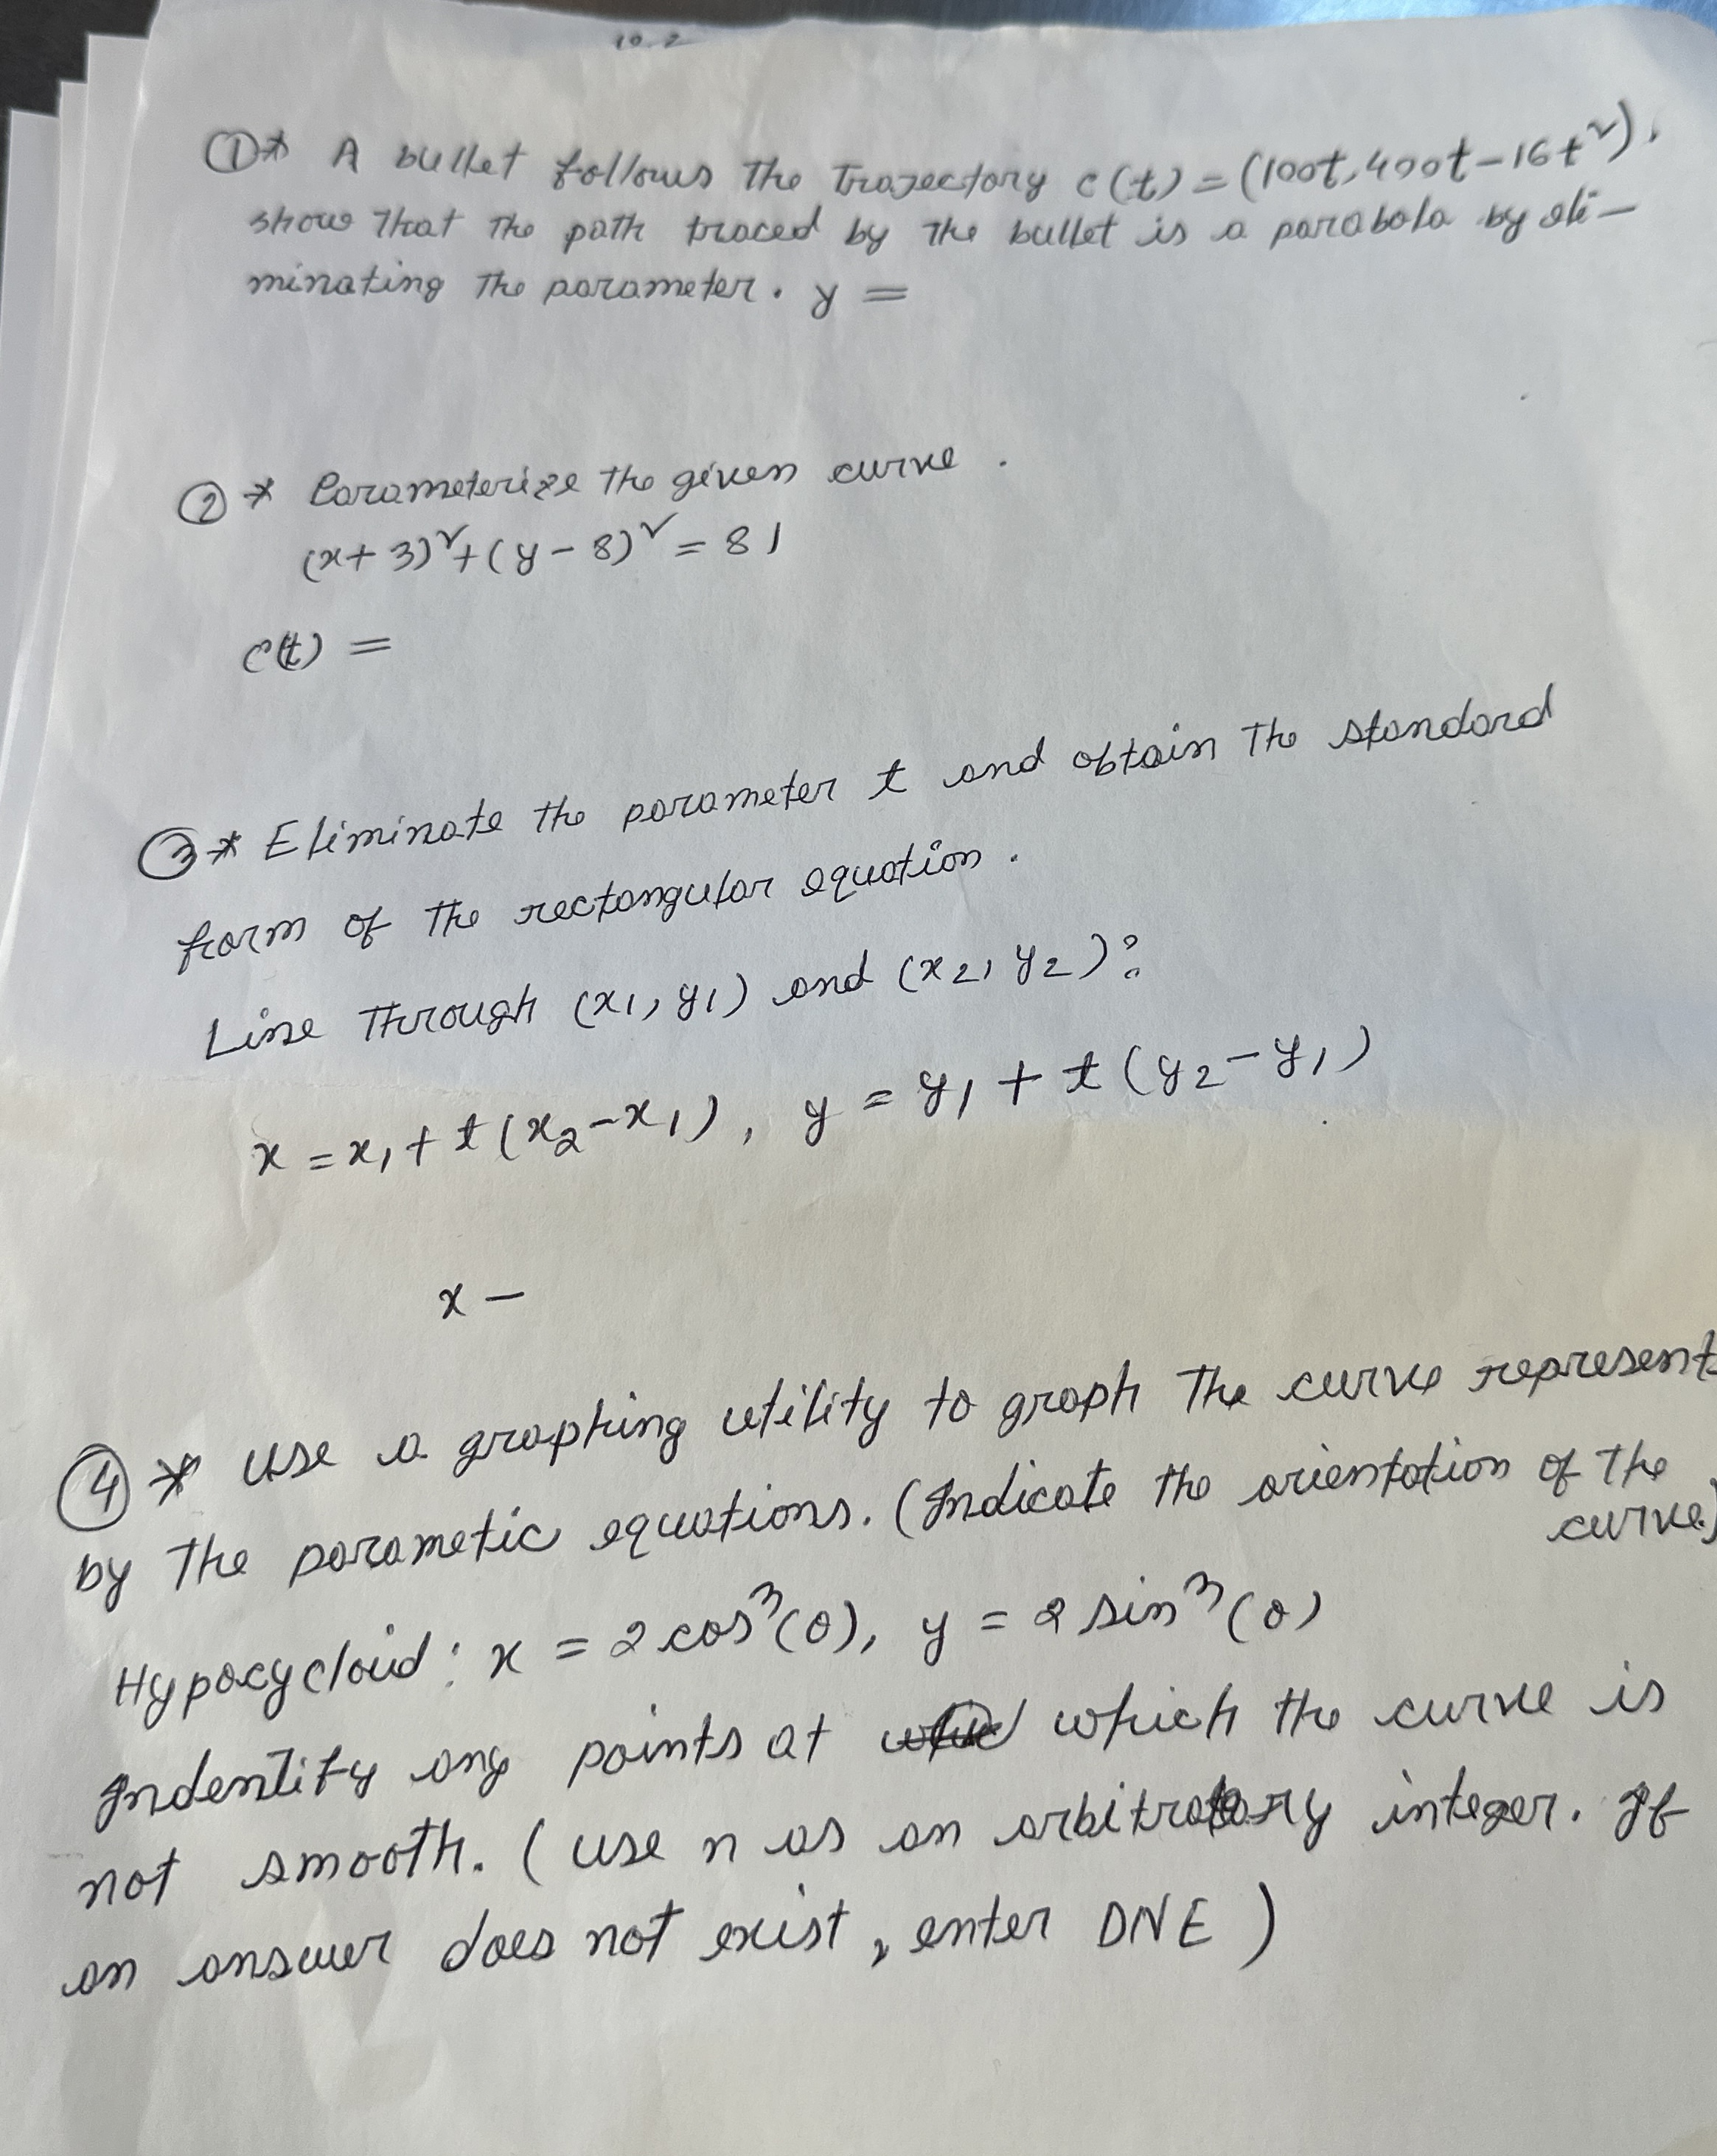 10.2
①* A bullet follows the trajectory c(t) = (100t, 400t - 16t²).
show that the path traced by the bullet is a parabola by eli-
minating the parameter. y =
②* Parameterize the given curve.
(x + 3)² + (y - 8)² = 81
c(t) =
③* Eliminate the parameter t and obtain the standard
form of the rectangular equation.
Line through (x1, y1) and (x2, y2):
x = x1 + t(x2 - x1), y = y1 + t(y2 - y1)
x -
④* Use a graphing utility to graph the curve represent
by the parametic equations. (Indicate the orientation of the
curve.)
Hypocycloid: x = 2 cos³(θ), y = 2 sin³(θ)
Indentify any points at which the curve is
not smooth. (use n as an arbitrary integer. If
an answer does not exist, enter DNE)